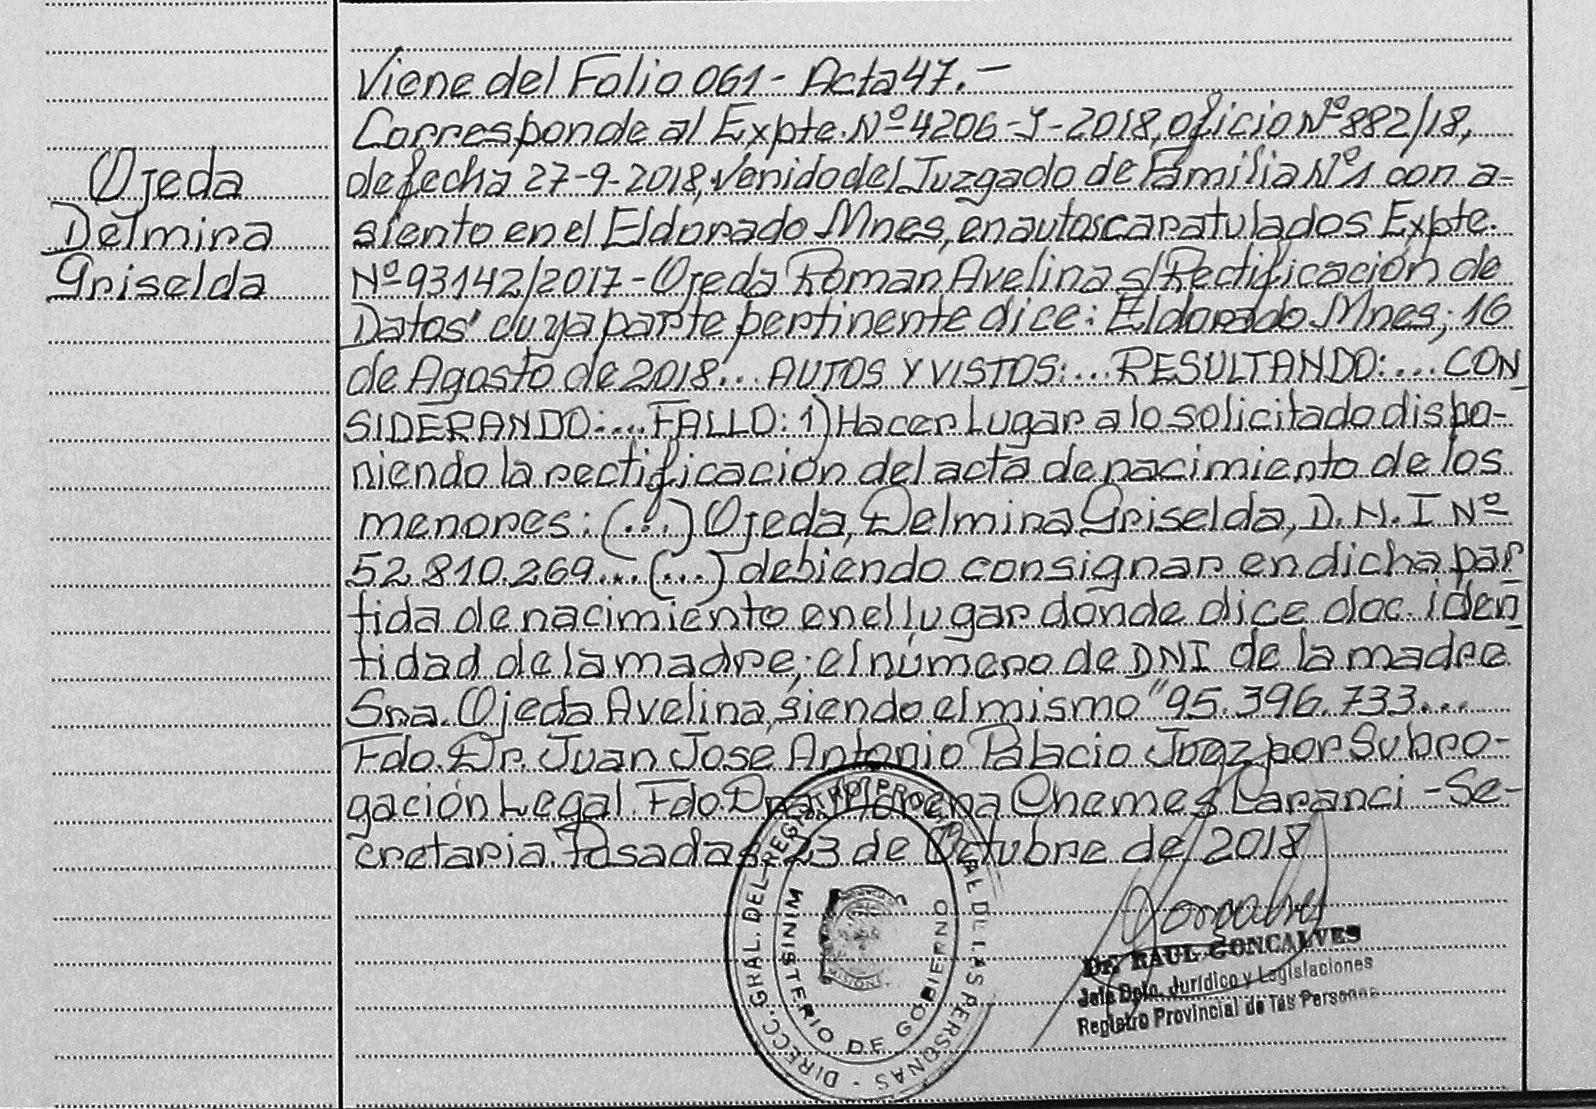 Ojeda
Delmira
Griselda
Viene del Folio 061 - Acta 47.-
Corresponde al Expte. Nº 4206-Y-2018, oficio Nº 882/18,
de fecha 27-9-2018, venido del Juzgado de Familia Nº 1 con a-
siento en el Eldorado Mnes, en autos caratulados Expte.
Nº 93142/2017 - Ojeda Roman Avelina s/Rectificación de
Datos" cuya parte pertinente dice: Eldorado Mnes; 16
de Agosto de 2018... AUTOS Y VISTOS:... RESULTANDO:... CON
SIDERANDO:... FALLO: 1) Hacer Lugar a lo solicitado dispo-
niendo la rectificación del acta de nacimiento de los
menores: (...) Ojeda, Delmira Griselda, D.N.I Nº
52.810.269... (...) debiendo consignar en dicha par
tida de nacimiento en el lugar donde dice doc. iden
tidad de la madre; el número de DNI de la madre
Sra. Ojeda Avelina, siendo el mismo "95.396.733...
Fdo. Dr. Juan Jose Antonio Palacio Juez por Subro-
gación Legal. Fdo Dra. Chemes Laranci - Se-
cretaria. Posadas, 23 de Octubre de 2018
DIRECC. GRAL. DEL REGISTRO PROVINCIAL DE LAS PERSONAS -
MINISTERIO DE GOBIERNO
MISIONES
Dr. RAUL GONCALVES
Jefe Dpto. Jurídico y Legislaciones
Registro Provincial de las Personas